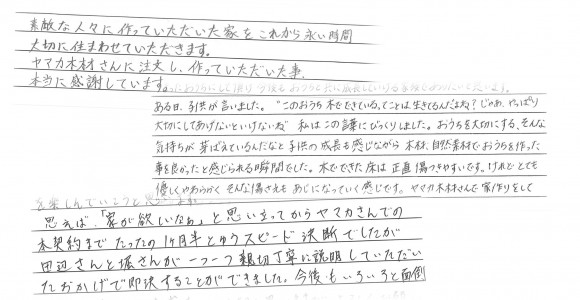 素敵な人々に作っていただいた家をこれから永い時間
大切に住まわせていただきます。
ヤマカ木材さんに注文し、作っていただいた事、
本当に感謝しています。
ある日、子供が言いました。"このおうち木でできている、てことは、生きてるんだよね?じゃあ、やっぱり
大切にしてあげないといけないね"私はこの言葉にびっくりしました。おうちを大切にする、そんな
気持ちが芽ばえているんだなと子供の成長も感じながら木材、自然素材でおうちを作った
事を良かったと感じられる瞬間でした。木でできた床は正直傷つきやすいです。けれどとても
優しくやわらかく そんな傷さえも あじになっていく感じです。ヤマカ木材さんで家作りをして
を楽しんでいこうと
思えば、「家が欲しいなぁ」と思い立ってからヤマカさんでの
本契約まで たったの1ヶ月半とゆうスピード決断でしたが
田辺さんと堀さんが一つ一つ親切丁寧に説明していただい
たおかげで即決することができました。今後もいろいろと面倒